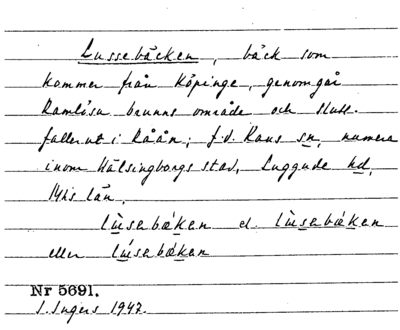 Lussebäcken, bäck som
kommer från Köpinge, genomgår
Ramlösa brunns område och slutl.
faller ut i Råån; f.d. Raus sn, numera
inom Hälsingborgs stad, Luggude hd,
Mhs län.
lùsebæken el. lùsebækən
eller lúsebækən
Nr 5691.
I. Ingers 1947.